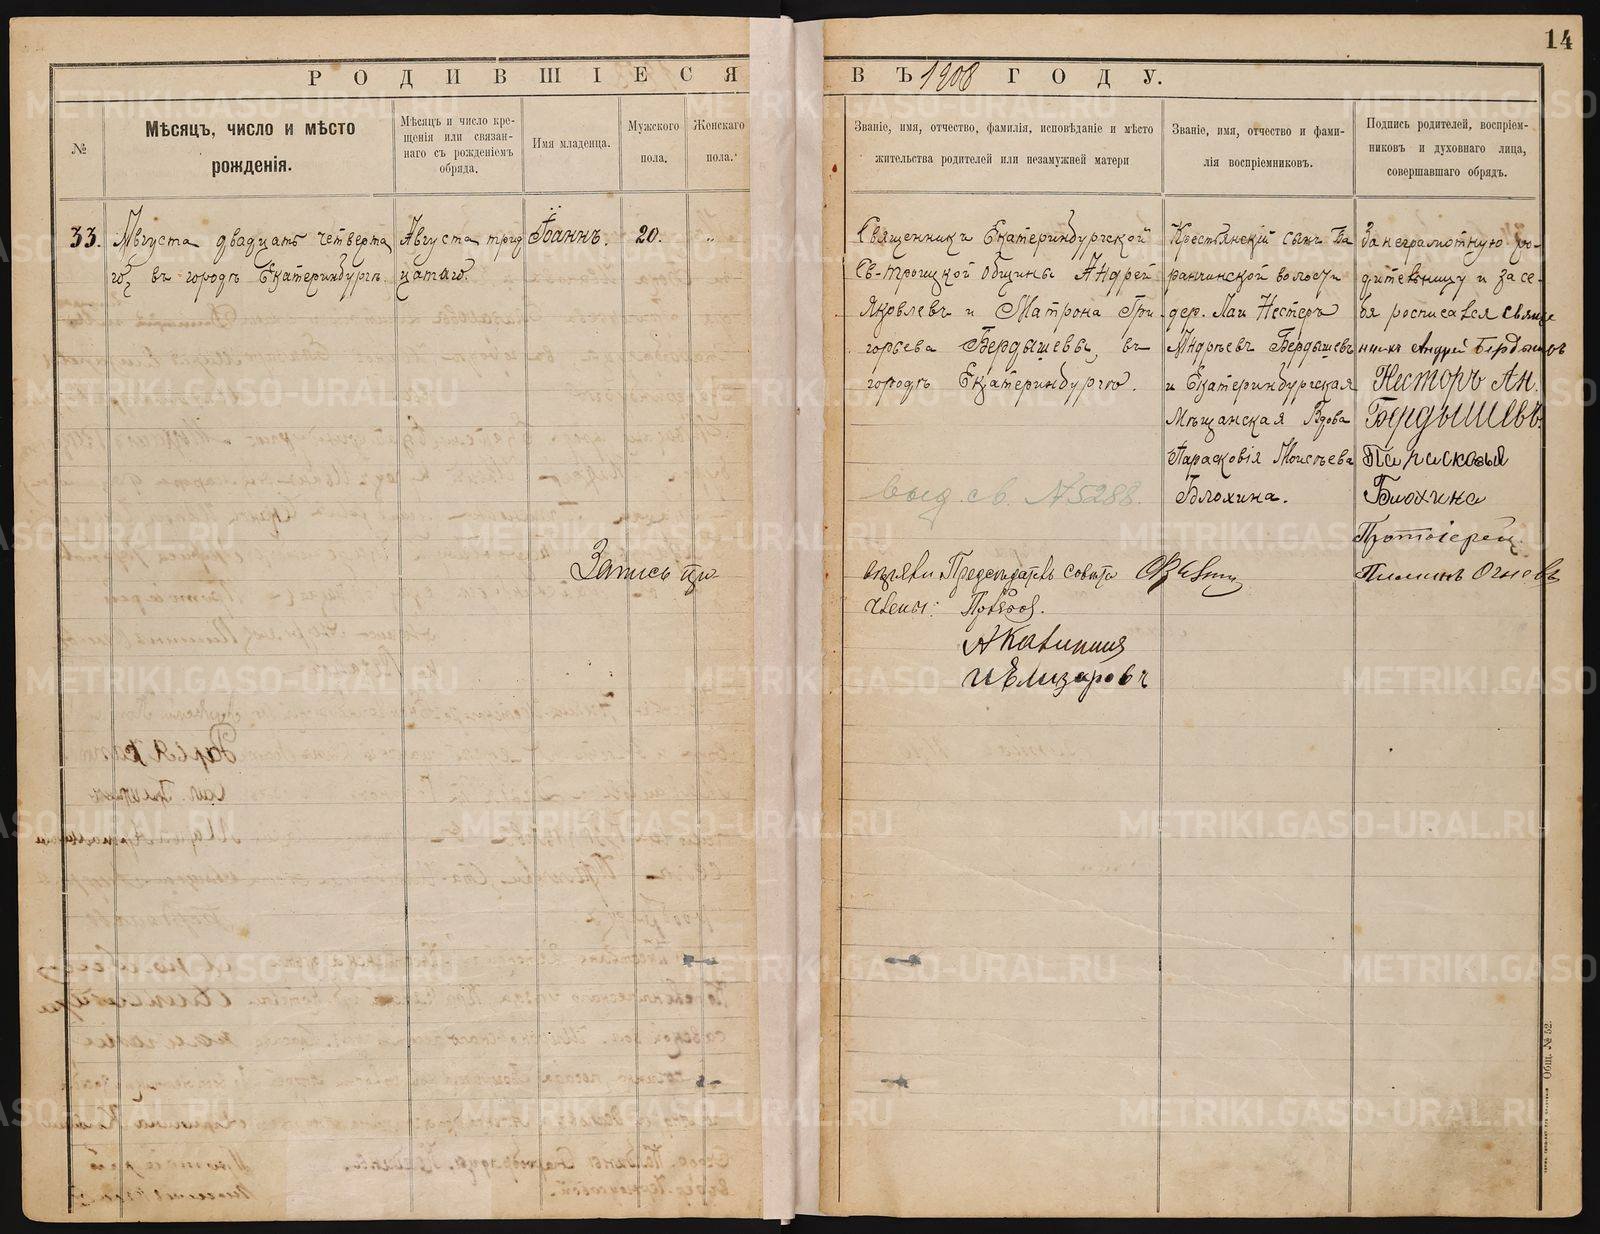 14
РОДИВШІЕСЯ ВЪ 1908 ГОДУ.
№
Мѣсяцъ, число и мѣсто
рожденія.
Мѣсяцъ и число кре-
щенія или связан-
наго съ рожденіемъ
обряда.
Имя младенца.
Мужского
пола.
Женскаго
пола.
Званіе, имя, отчество, фамилія, исповѣданіе и мѣсто
жительства родителей или незамужней матери
Званіе, имя, отчество и фами-
лія воспріемниковъ.
Подпись родителей, воспріем-
никовъ и духовнаго лица,
совершавшаго обрядъ.
33.
Августа двадцать четверта
го, въ городѣ Екатеринбургѣ.
Августа трид
цатаго.
Іоаннъ.
20.
"
Священникъ Екатеринбургской
Св-Троицкой общины Андрей
Яковлевъ и Матрона Гри
горьева Бердышевы, въ
городѣ Екатеринбургѣ.
Крестьянскій сынъ Ба
ранчинской волости
дер. Лаи Нестеръ
Андреевъ Бердышевъ
и Екатеринбургская
Мѣщанская Вдова
Парасковія Моисѣева
Блохина.
За неграмотную ро-
дительницу и за се-
бя росписался свяще
нникъ Андрей Бердышевъ
Несторъ Ан.
Бердышевъ.
Парасковья
Блохина
Протоіерей
Пименъ Огневъ
Выд. св. № 5288.
Запись
Предсѣдатель совѣта
Члены:
А Калинин
И Елизаровъ
Общ. № 52.
METRIKI.GASO-URAL.RU